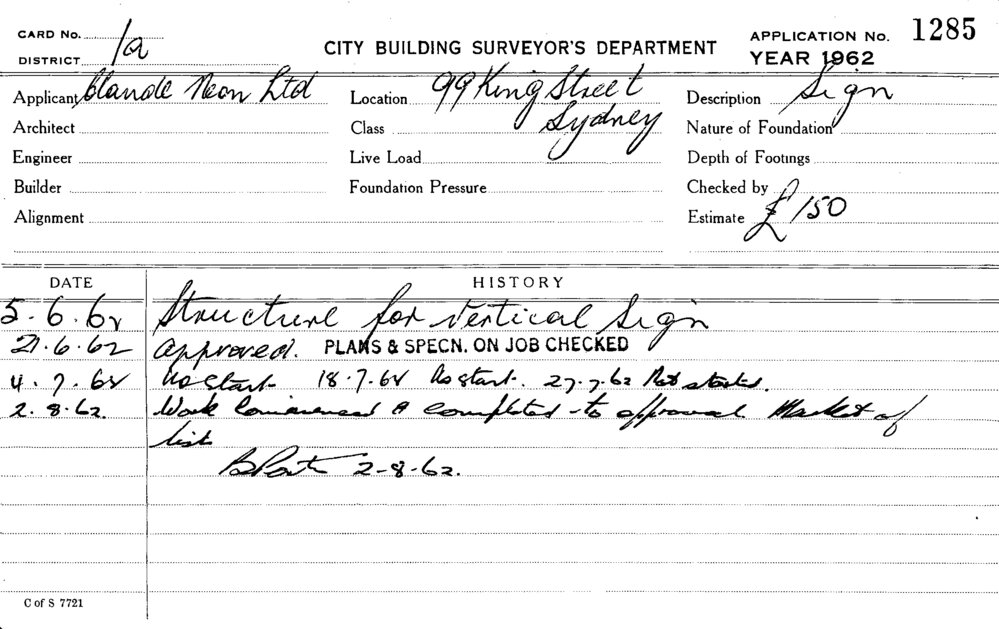 CARD No.
DISTRICT 1a
CITY BUILDING SURVEYOR'S DEPARTMENT
APPLICATION No. 1285
YEAR 1962
Applicant Claude Neon Ltd
Location 99 King Street Sydney
Description Sign
Architect
Class
Nature of Foundation
Engineer
Live Load
Depth of Footings
Builder
Foundation Pressure
Checked by
Alignment
Estimate £150
DATE HISTORY
5.6.62 Structure for Vertical Sign
21.6.62 Approved. PLANS & SPECN. ON JOB CHECKED
4.7.62 No start 18.7.62 No start. 27.7.62 Not started.
2.8.62 Work Commenced & completed to approval Marked of
list
2-8-62.
C of S 7721